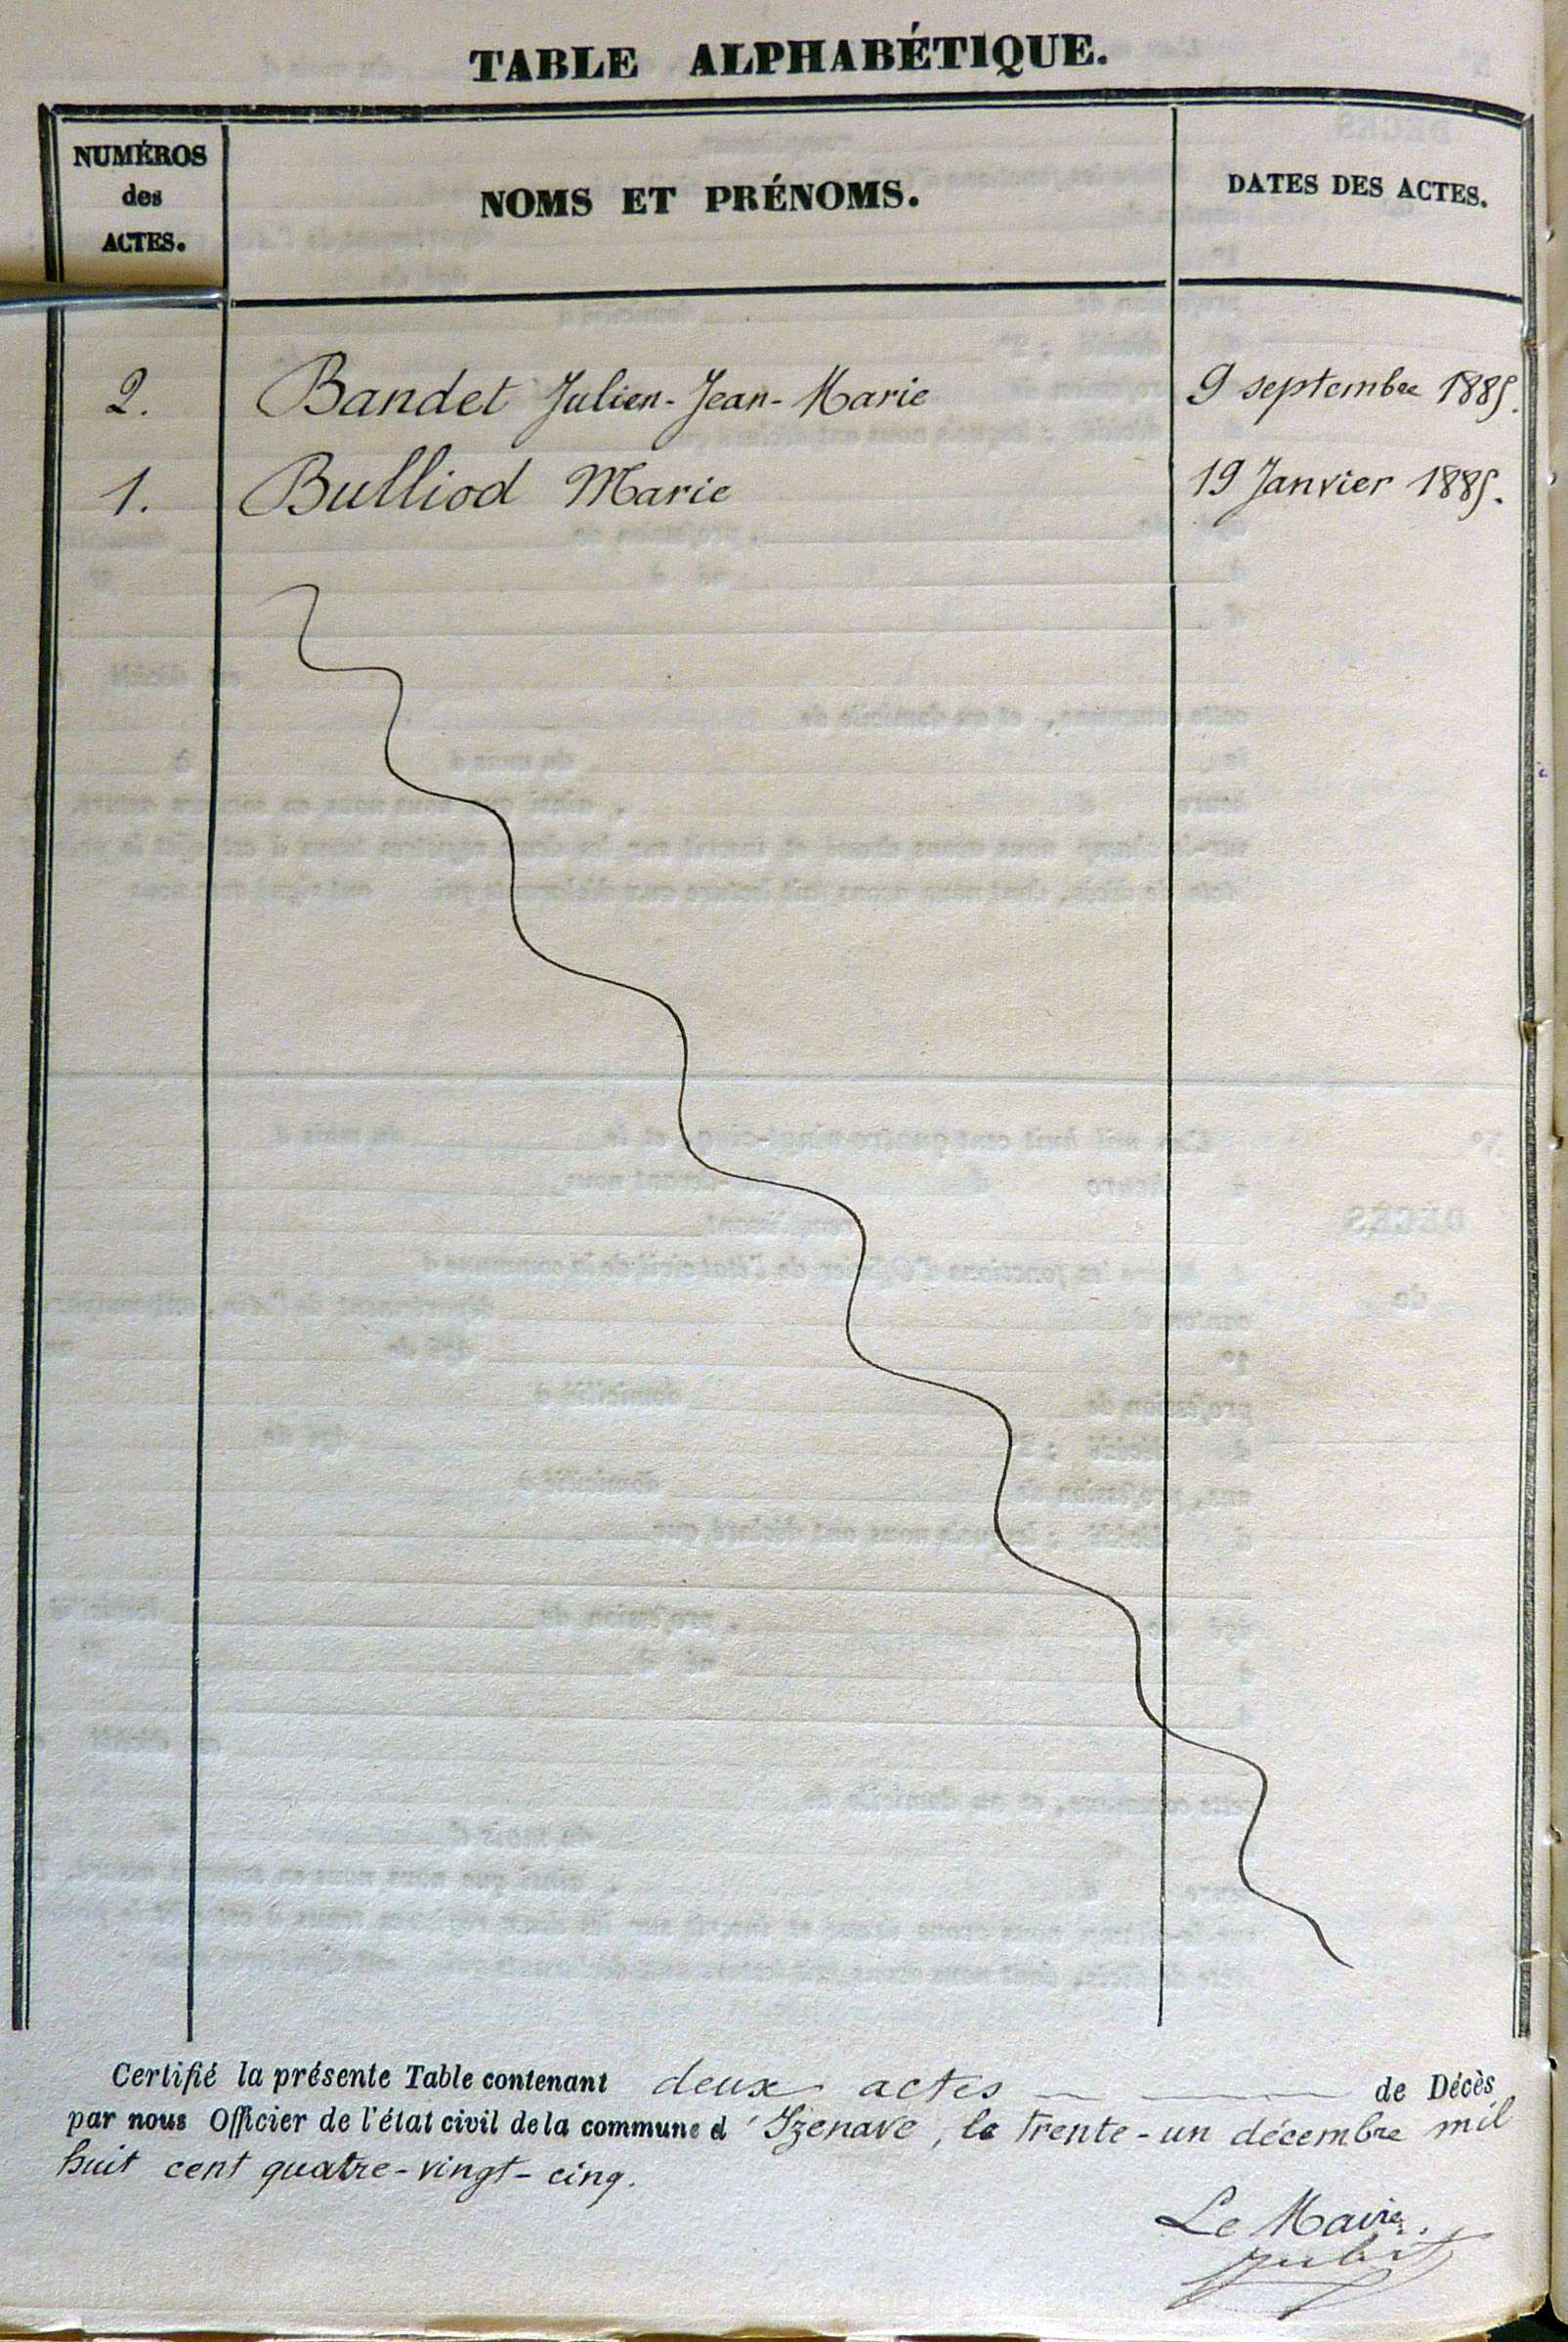 TABLE ALPHABÉTIQUE.
NUMÉROS des ACTES.
NOMS ET PRÉNOMS.
DATES DES ACTES.
2. Bandet Julien-Jean-Marie 9 septembre 1885.
1. Bulliod Marie 19 Janvier 1885.
Certifié la présente Table contenant deux actes de Décès
par nous Officier de l'état civil de la commune d'Izenave, le trente-un décembre mil
huit cent quatre-vingt-cinq.
Le Maire